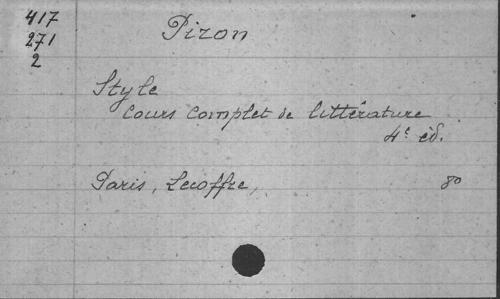 417
271
2
Piron
Style
Cours complet de littérature
4e éd.
Paris, Lecoffre,
8o